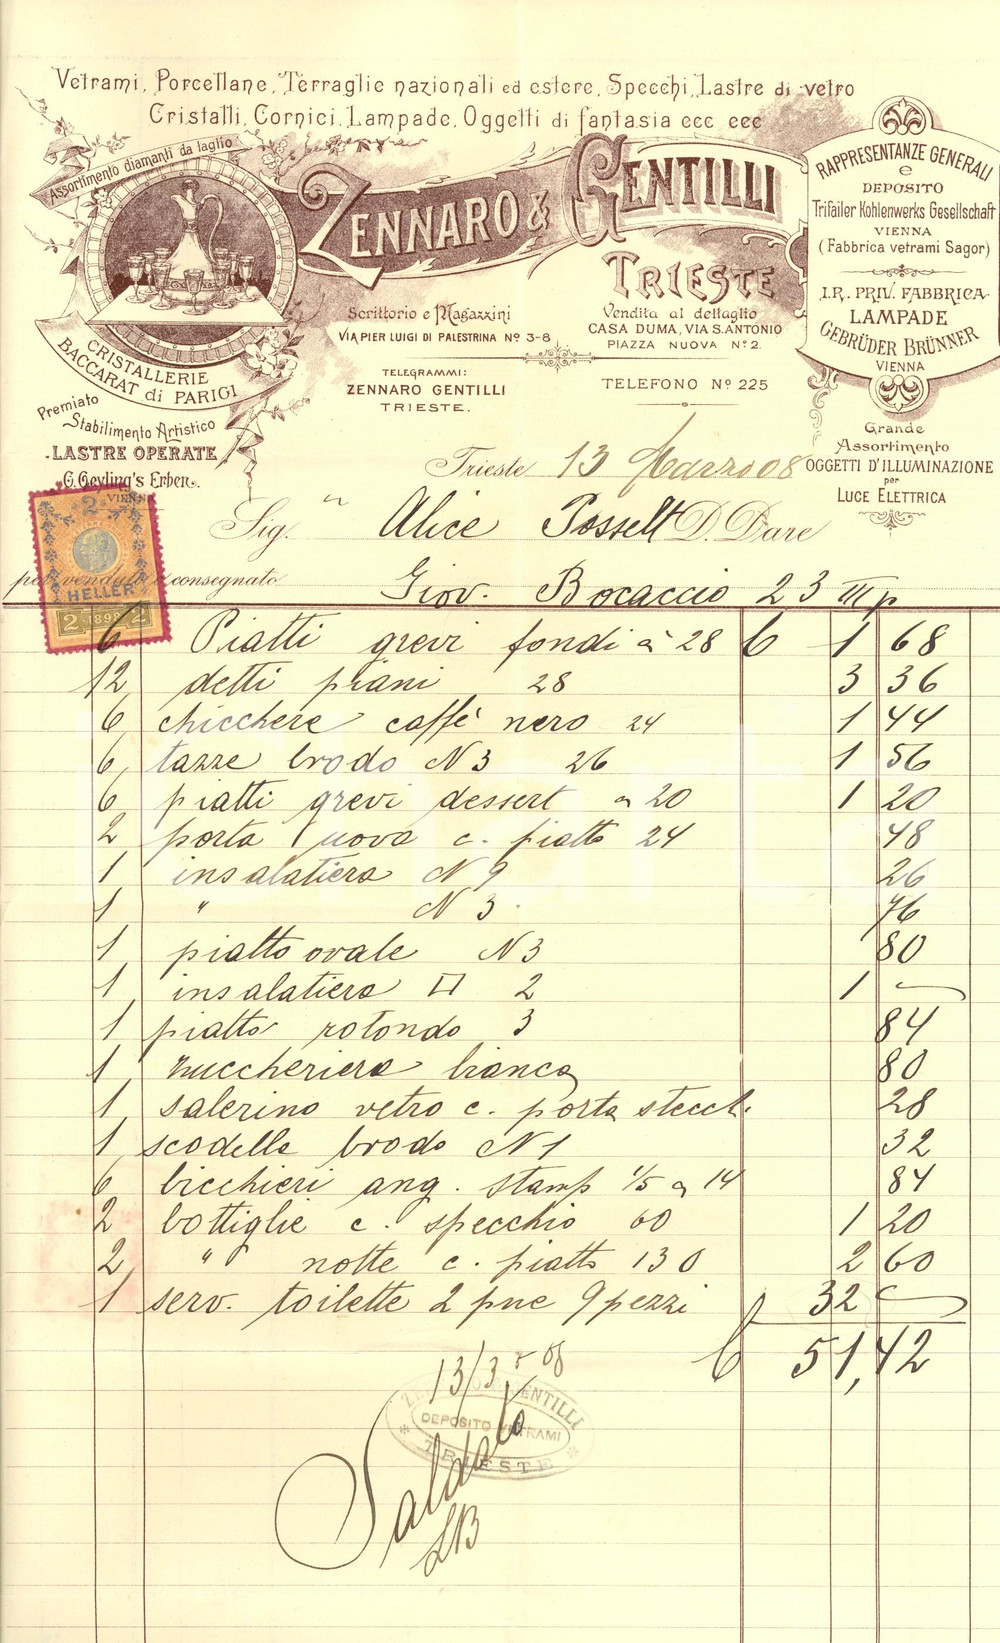 Vetrami, Porcellane, Terraglie nazionali ed estere, Specchi, Lastre di vetro
Cristalli, Cornici, Lampade, Oggetti di fantasia ecc ecc
Assortimento diamanti da taglio
ZENNARO & GENTILLI
TRIESTE
CRISTALLERIE
BACCARAT di PARIGI
Premiato
Stabilimento Artistico
LASTRE OPERATE
C. Geyling's Erben.
VIENNA
Scrittorio e Magazzini
VIA PIER LUIGI DI PALESTRINA Nº 3-8
TELEGRAMMI:
ZENNARO GENTILLI
TRIESTE.
Vendita al dettaglio
CASA DUMA, VIA S. ANTONIO
PIAZZA NUOVA Nº 2.
TELEFONO Nº 225
RAPPRESENTANZE GENERALI
e
DEPOSITO
Trifailer Kohlenwerks Gesellschaft
VIENNA
(Fabbrica vetrami Sagor)
I.R. PRIV. FABBRICA
LAMPADE
GEBRÜDER BRÜNNER
VIENNA
Grande
Assortimento
OGGETTI D'ILLUMINAZIONE
per
LUCE ELETTRICA
Trieste 13 Marzo 08
Sig. Alice Posselt D. Dare
per vendutole e consegnato
Giov. Bocaccio 23 III p
2
HELLER
2 1898 2
6 Piatti grevi fondi à 28 1 68
12 detti piani 28 3 36
6 chicchere caffè nero 24 1 44
6 tazze brodo N 3 26 1 56
6 piatti grevi dessert a 20 1 20
2 porta uova c. piatto 24 48
1 insalatiera N 9 26
1 " N 3 76
1 piatto ovale N 3 80
1 insalatiera □ 2 1 —
1 piatto rotondo 3 84
1 zuccheriera bianca 80
1 salerino vetro c. porta stecchi 28
1 scodella brodo N 1 32
6 bicchieri ang. stamp 1/5 a 14 84
2 bottiglie c. specchio 60 1 20
2 " notte c. piatto 130 2 60
1 serv. toilette 2 pne 9 pezzi 32 —
51,42
13/3 08
ZENNARO & GENTILLI
DEPOSITO VETRAMI
TRIESTE
Saldato
LB